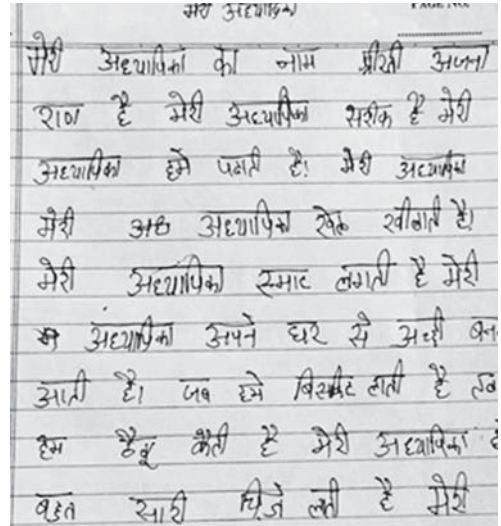 मेरी अध्यापिका
PAGE NO.
मेरी अध्यापिका का नाम श्रीरती अंजना
राणा है मेरी अध्यापिका सरीक है मेरी
अध्यापिका हमे पढाती है। मेरी अध्यापिका
मेरी अध अध्यापिका खेल खीलाती है।
मेरी अध्यापिका स्माट लगती है मेरी
अध्यापिका अपने घर से अच्छी बन
आती है। जब हमे बिस्कीट लाती है तब
हम ठेंक्यू कैती है मेरी अध्यापिका
बहुत सारी चिजे लती है मेरी